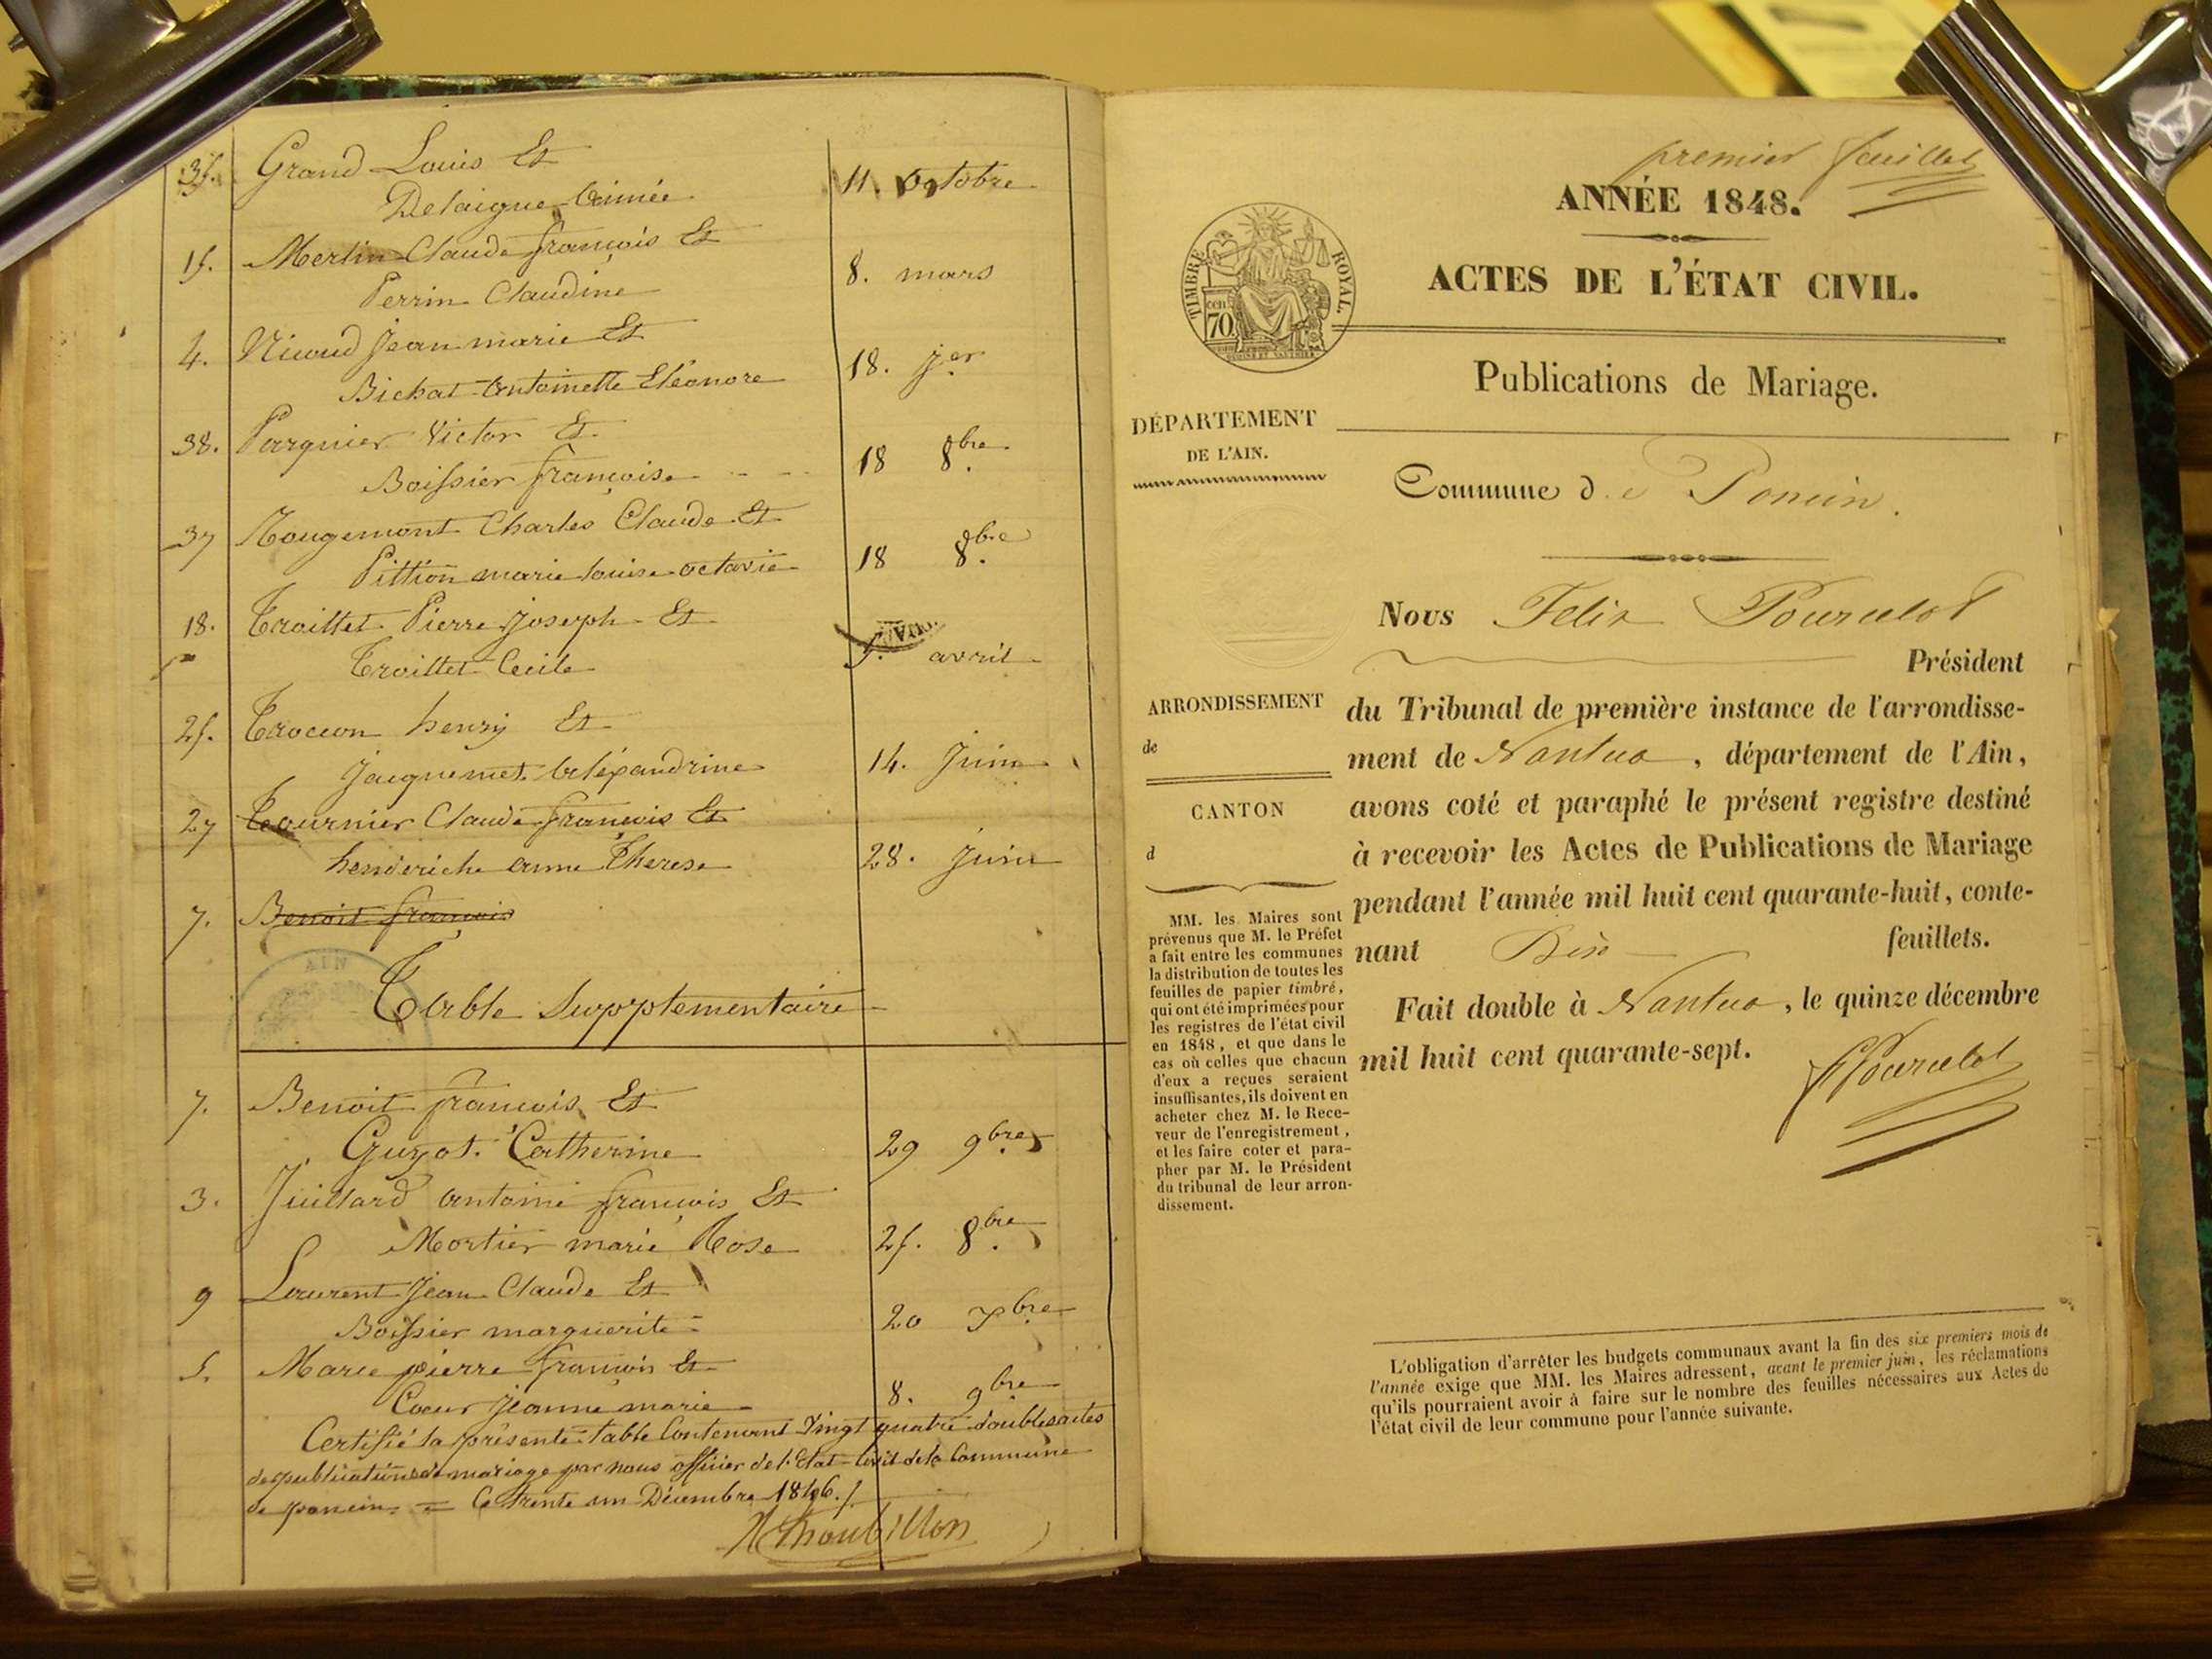 35. Grand Louis Et
Delaigue Aimée 11. Octobre
15. Merlin Claude françois Et
Perrin Claudine 8. mars
4. Nicoud Jean marie Et
Bichat antoinette Eléonore 18. jer
38. Parguier Victor Et
Boissier françoise 18 8bre
37 Rougemont Charles Claude Et
Pittion marie louise octavie 18 8bre
18. Troillet Pierre joseph Et
Troillet Cecile 5. avril
25. Trocon henry Et
Jacquemet Aléxandrine 14. Juin
27 Tournier Claude françois Et
henderiche anne Therese 28. Juin
7. Benoit françois
AIN
Table Supplementaire
7. Benoit françois Et
Guyot Catherine 29 9bre
3. Juillard antoine françois Et
Mortier marie Rose 25. 8bre
9 Laurent Jean Claude Et
Boissier marguerite 20 Xbre
5. Marce pierre françois Et
Coeur Jeanne marie 8. 9bre
Certifié la présente table Contenant Vingt quatre doubles actes
de publications de mariage par nous officier de l'Etat Civil de la Commune
de poncin = Ce trente un Décembre 1846./.
Thoubillon
premier feuillet
ANNÉE 1848.
TIMBRE ROYAL.
cen
70
ACTES DE L'ÉTAT CIVIL.
Publications de Mariage.
DÉPARTEMENT
DE L'AIN.
Commune de Poncin.
Nous Felix Pourcelot
Président
ARRONDISSEMENT
de
CANTON
d
du Tribunal de première instance de l'arrondisse-
ment de Nantua, département de l'Ain,
avons coté et paraphé le présent registre destiné
à recevoir les Actes de Publications de Mariage
pendant l'année mil huit cent quarante-huit, conte-
nant Dix feuillets.
Fait double à Nantua, le quinze décembre
mil huit cent quarante-sept.
F Pourcelot
MM. les Maires sont
prévenus que M. le Préfet
a fait entre les communes
la distribution de toutes les
feuilles de papier timbré,
qui ont été imprimées pour
les registres de l'état civil
en 1848, et que dans le
cas où celles que chacun
d'eux a reçues seraient
insuffisantes, ils doivent en
acheter chez M. le Rece-
veur de l'enregistrement,
et les faire coter et para-
pher par M. le Président
du tribunal de leur arron-
dissement.
L'obligation d'arrêter les budgets communaux avant la fin des six premiers mois de
l'année exige que MM. les Maires adressent, avant le premier juin, les réclamations
qu'ils pourraient avoir à faire sur le nombre des feuilles nécessaires aux Actes de
l'état civil de leur commune pour l'année suivante.